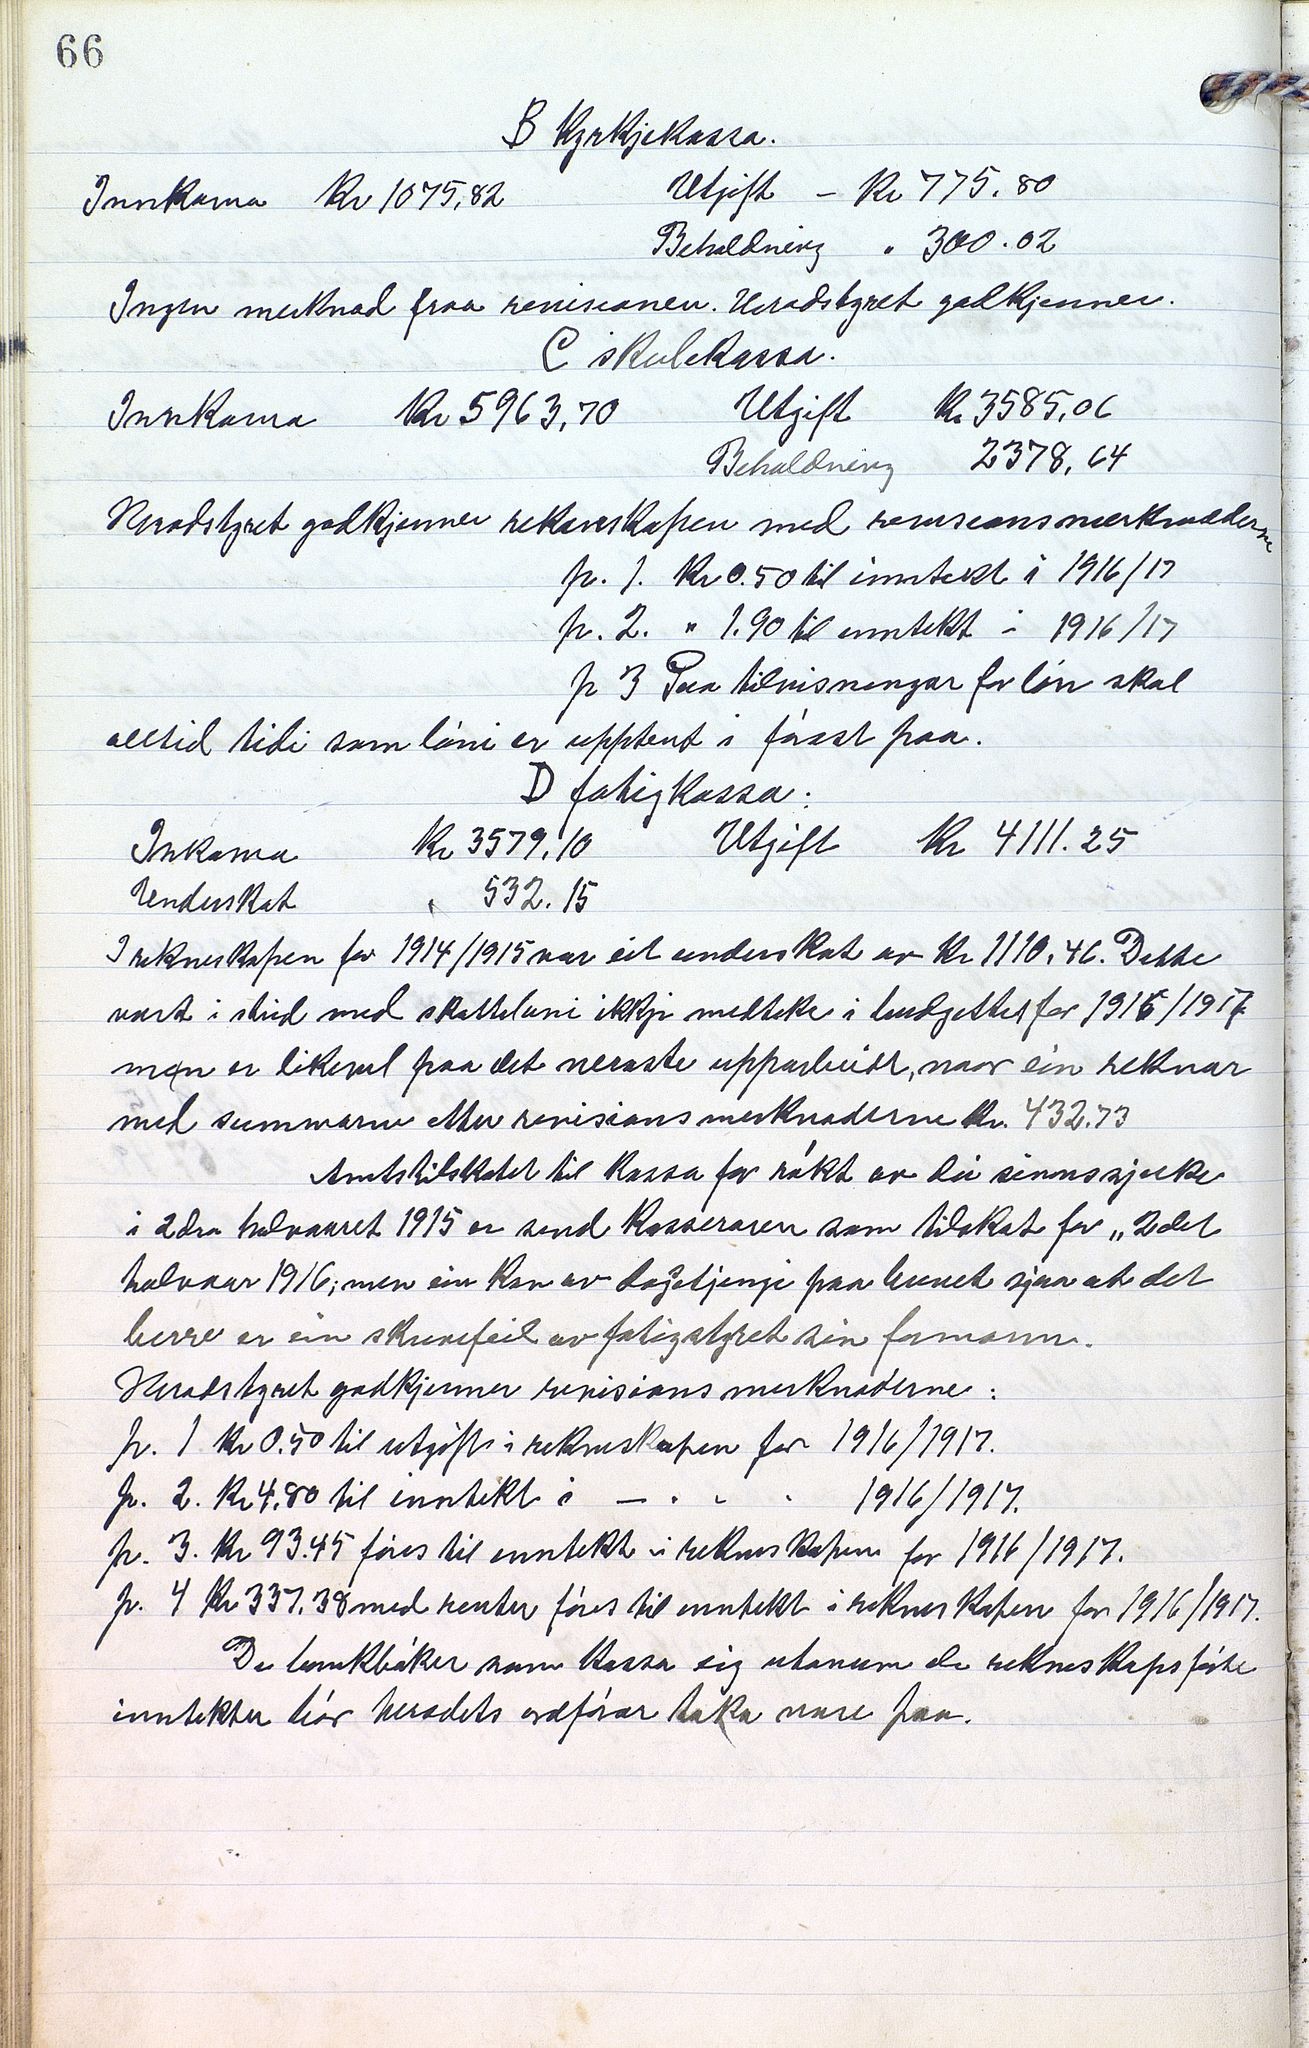 66
B Kyrkjekassa.
Innkoma Kr 1075,82 Utgift – Kr 775.80
Behaldning " 300.02
Ingen merknad fraa revisionen. Heradstyret godkjenner.
C skulekassa.
Innkoma Kr 5963,70 Utgift Kr 3585,06
Behaldning 2378,64
Heradstyret godkjenner rekneskapen med revisionsmerknaderne
p. 1. Kr 0.50 til inntekt i 1916/17
p. 2. " 1.90 til inntekt i 1916/17
p 3 Paa tilvisningar for løn skal
alltid tidi som løni er upptent i førast paa.
D fatigkassa:
Inkoma Kr 3579,10 Utgift Kr 4111.25
Underskot " 532.15
I rekneskapen for 1914/1915 var eit underskot av Kr 1110.46. Dette
vart i strid med skattelovi ikkje medteke i budgettet for 1916/1917
men er likevel paa det næraste upparbeidt, naar ein reknar
med summarne etter revisionsmerknaderne Kr. 432.73
Amtstilskotet til kassa for røkt av dei sinnssjuke
i 2dra halvaaret 1915 er send kasseraren som tilskot for „2det
halvaar 1916; men ein kan av dagteljingi paa brevet sjaa at det
berre er ein skrivefeil av fatigstyret sin formann.
Heradstyret godkjenner revisionsmerknaderne:
p. 1 Kr 0.50 til utgift i rekneskapen for 1916/1917.
p. 2. Kr 4,80 til inntekt i — " " " 1916/1917.
p. 3. Kr 93.45 føres til inntekt i rekneskapen for 1916/1917.
p. 4 Kr 337.38 med renter føres til inntekt i rekneskapen for 1916/1917.
De bankbøker som kassa eig utanum de rekneskapsførte
inntekter bør heradets ordførar taka vare paa.